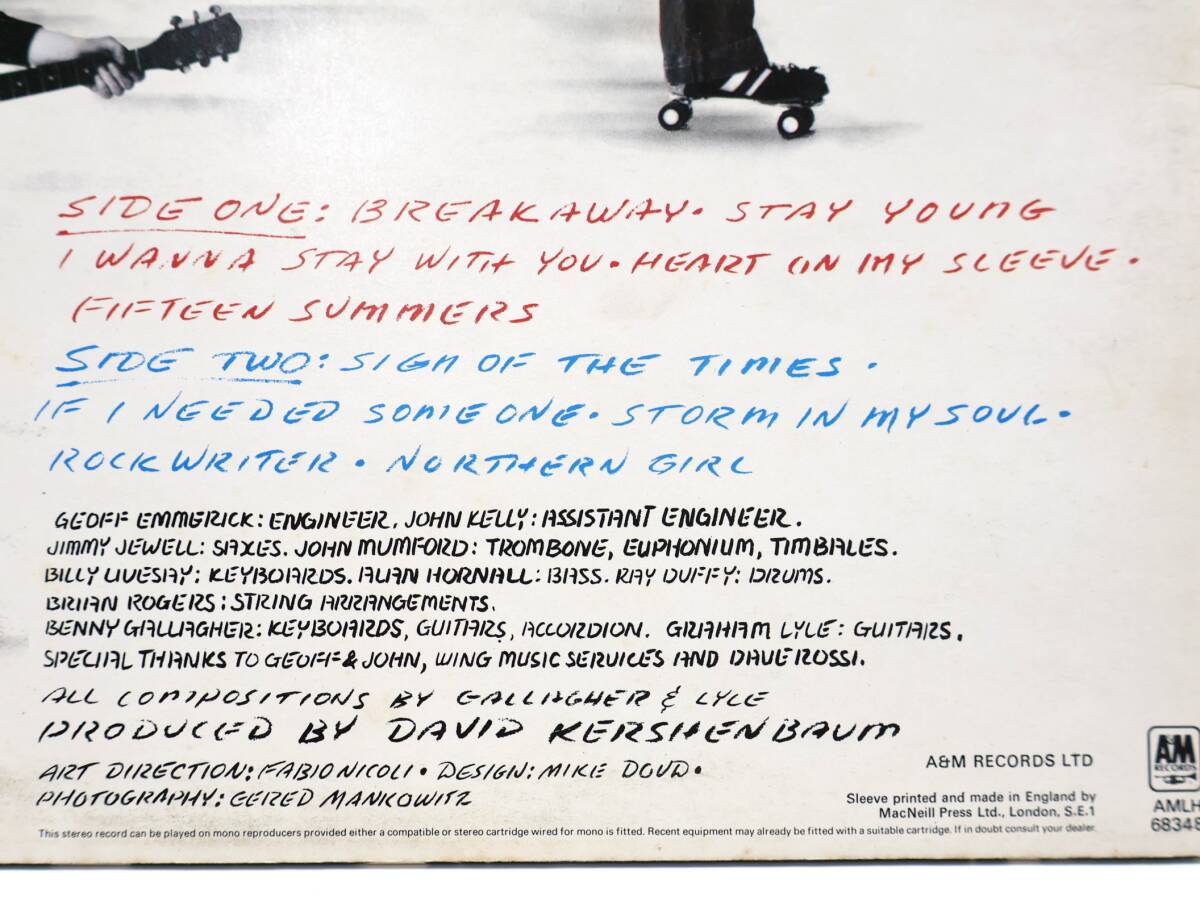 SIDE ONE: BREAKAWAY. STAY YOUNG
I WANNA STAY WITH YOU. HEART ON MY SLEEVE.
FIFTEEN SUMMERS
SIDE TWO: SIGN OF THE TIMES.
IF I NEEDED SOMEONE. STORM IN MY SOUL.
ROCKWRITER. NORTHERN GIRL
GEOFF EMMERICK: ENGINEER. JOHN KELLY: ASSISTANT ENGINEER.
JIMMY JEWELL: SAXES. JOHN MUMFORD: TROMBONE, EUPHONIUM, TIMBALES.
BILLY LIVESAY: KEYBOARDS. ALAN HORNALL: BASS. RAY DUFFY: DRUMS.
BRIAN ROGERS: STRING ARRANGEMENTS.
BENNY GALLAGHER: KEYBOARDS, GUITARS, ACCORDION. GRAHAM LYLE: GUITARS.
SPECIAL THANKS TO GEOFF & JOHN, WING MUSIC SERVICES AND DAVE ROSSI.
ALL COMPOSITIONS BY GALLAGHER & LYLE
PRODUCED BY DAVID KERSHENBAUM
ART DIRECTION: FABIO NICOLI. DESIGN: MIKE DOUD.
PHOTOGRAPHY: GERED MANKOWITZ
A&M RECORDS LTD
Sleeve printed and made in England by
MacNeill Press Ltd., London, S.E.1
A&M
RECORDS
AMLH
68348
This stereo record can be played on mono reproducers provided either a compatible or stereo cartridge wired for mono is fitted. Recent equipment may already be fitted with a suitable cartridge. If in doubt consult your dealer.